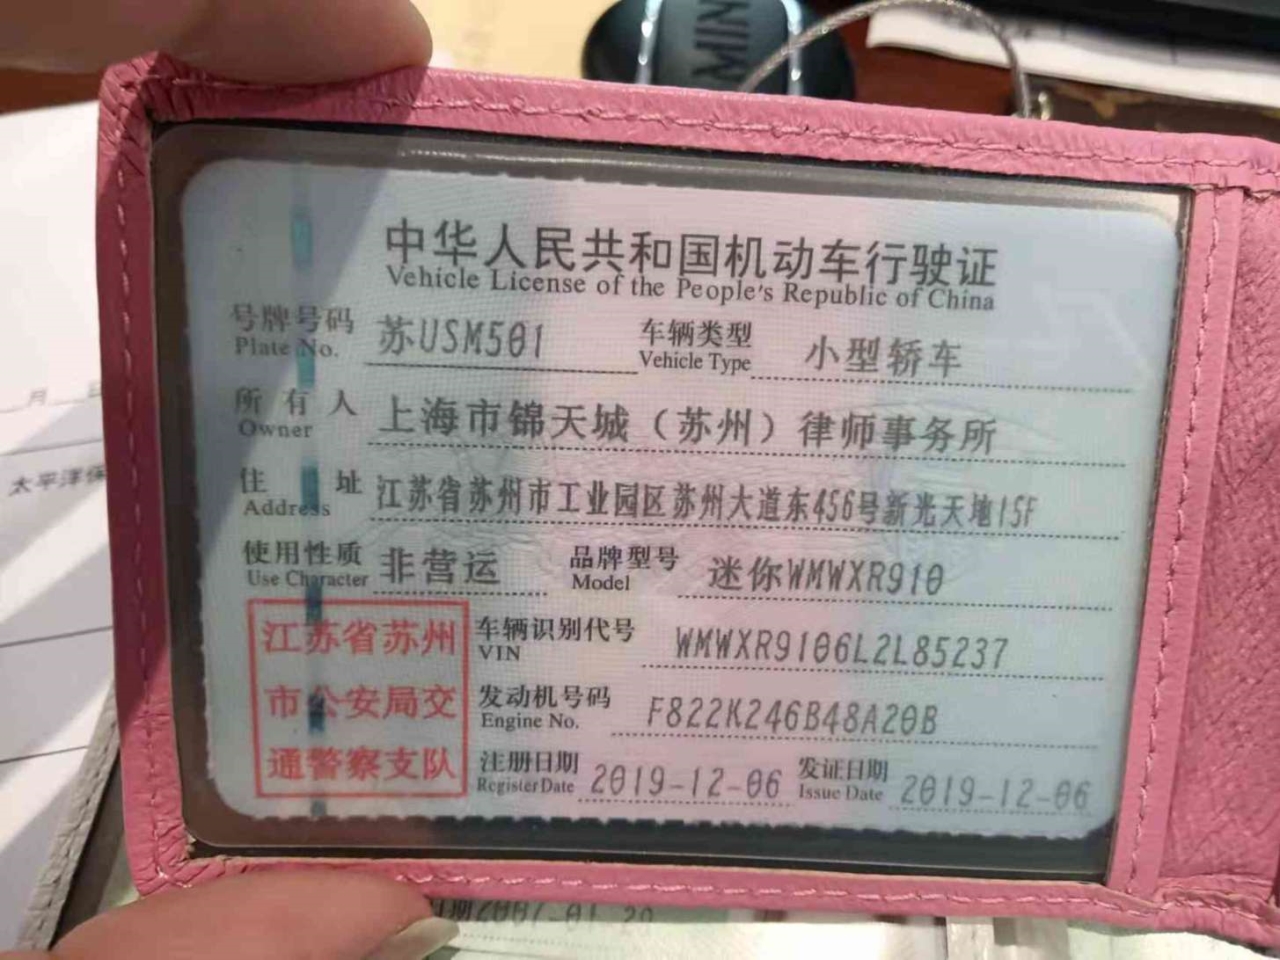 MINI
月 日
太平洋保
中华人民共和国机动车行驶证
Vehicle License of the People's Republic of China
号牌号码 苏USM501 车辆类型 小型轿车
Plate No. Vehicle Type
所有人 上海市锦天城（苏州）律师事务所
Owner
住址 江苏省苏州市工业园区苏州大道东456号新光天地15F
Address
使用性质 非营运 品牌型号 迷你WMWXR910
Use Character Model
江苏省苏州
市公安局交
通警察支队
车辆识别代号 WMWXR9106L2L85237
VIN
发动机号码 F822K246B48A20B
Engine No.
注册日期 2019-12-06 发证日期 2019-12-06
Register Date Issue Date